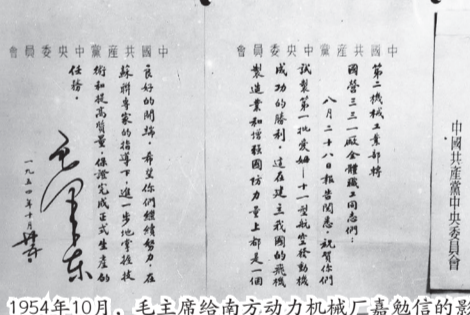 會員委央中黨產共國中
第二機械工業部轉
國營三三一廠全體職工同志們：
八月二十八日報告閱悉。祝賀你們
試製第一批愛姆十一型航空發動機
成功的勝利。這在建立我國的飛機
製造業和增強國防力量上都是一個
會員委央中黨產共國中
良好的開端。希望你們繼續努力，在
蘇聯專家的指導下，進一步地掌握技
術和提高質量，保證完成正式生產的
任務。
毛澤東
一九五四年十月
中國共產黨中央委員會
1954年10月，毛主席给南方动力机械厂嘉勉信的影